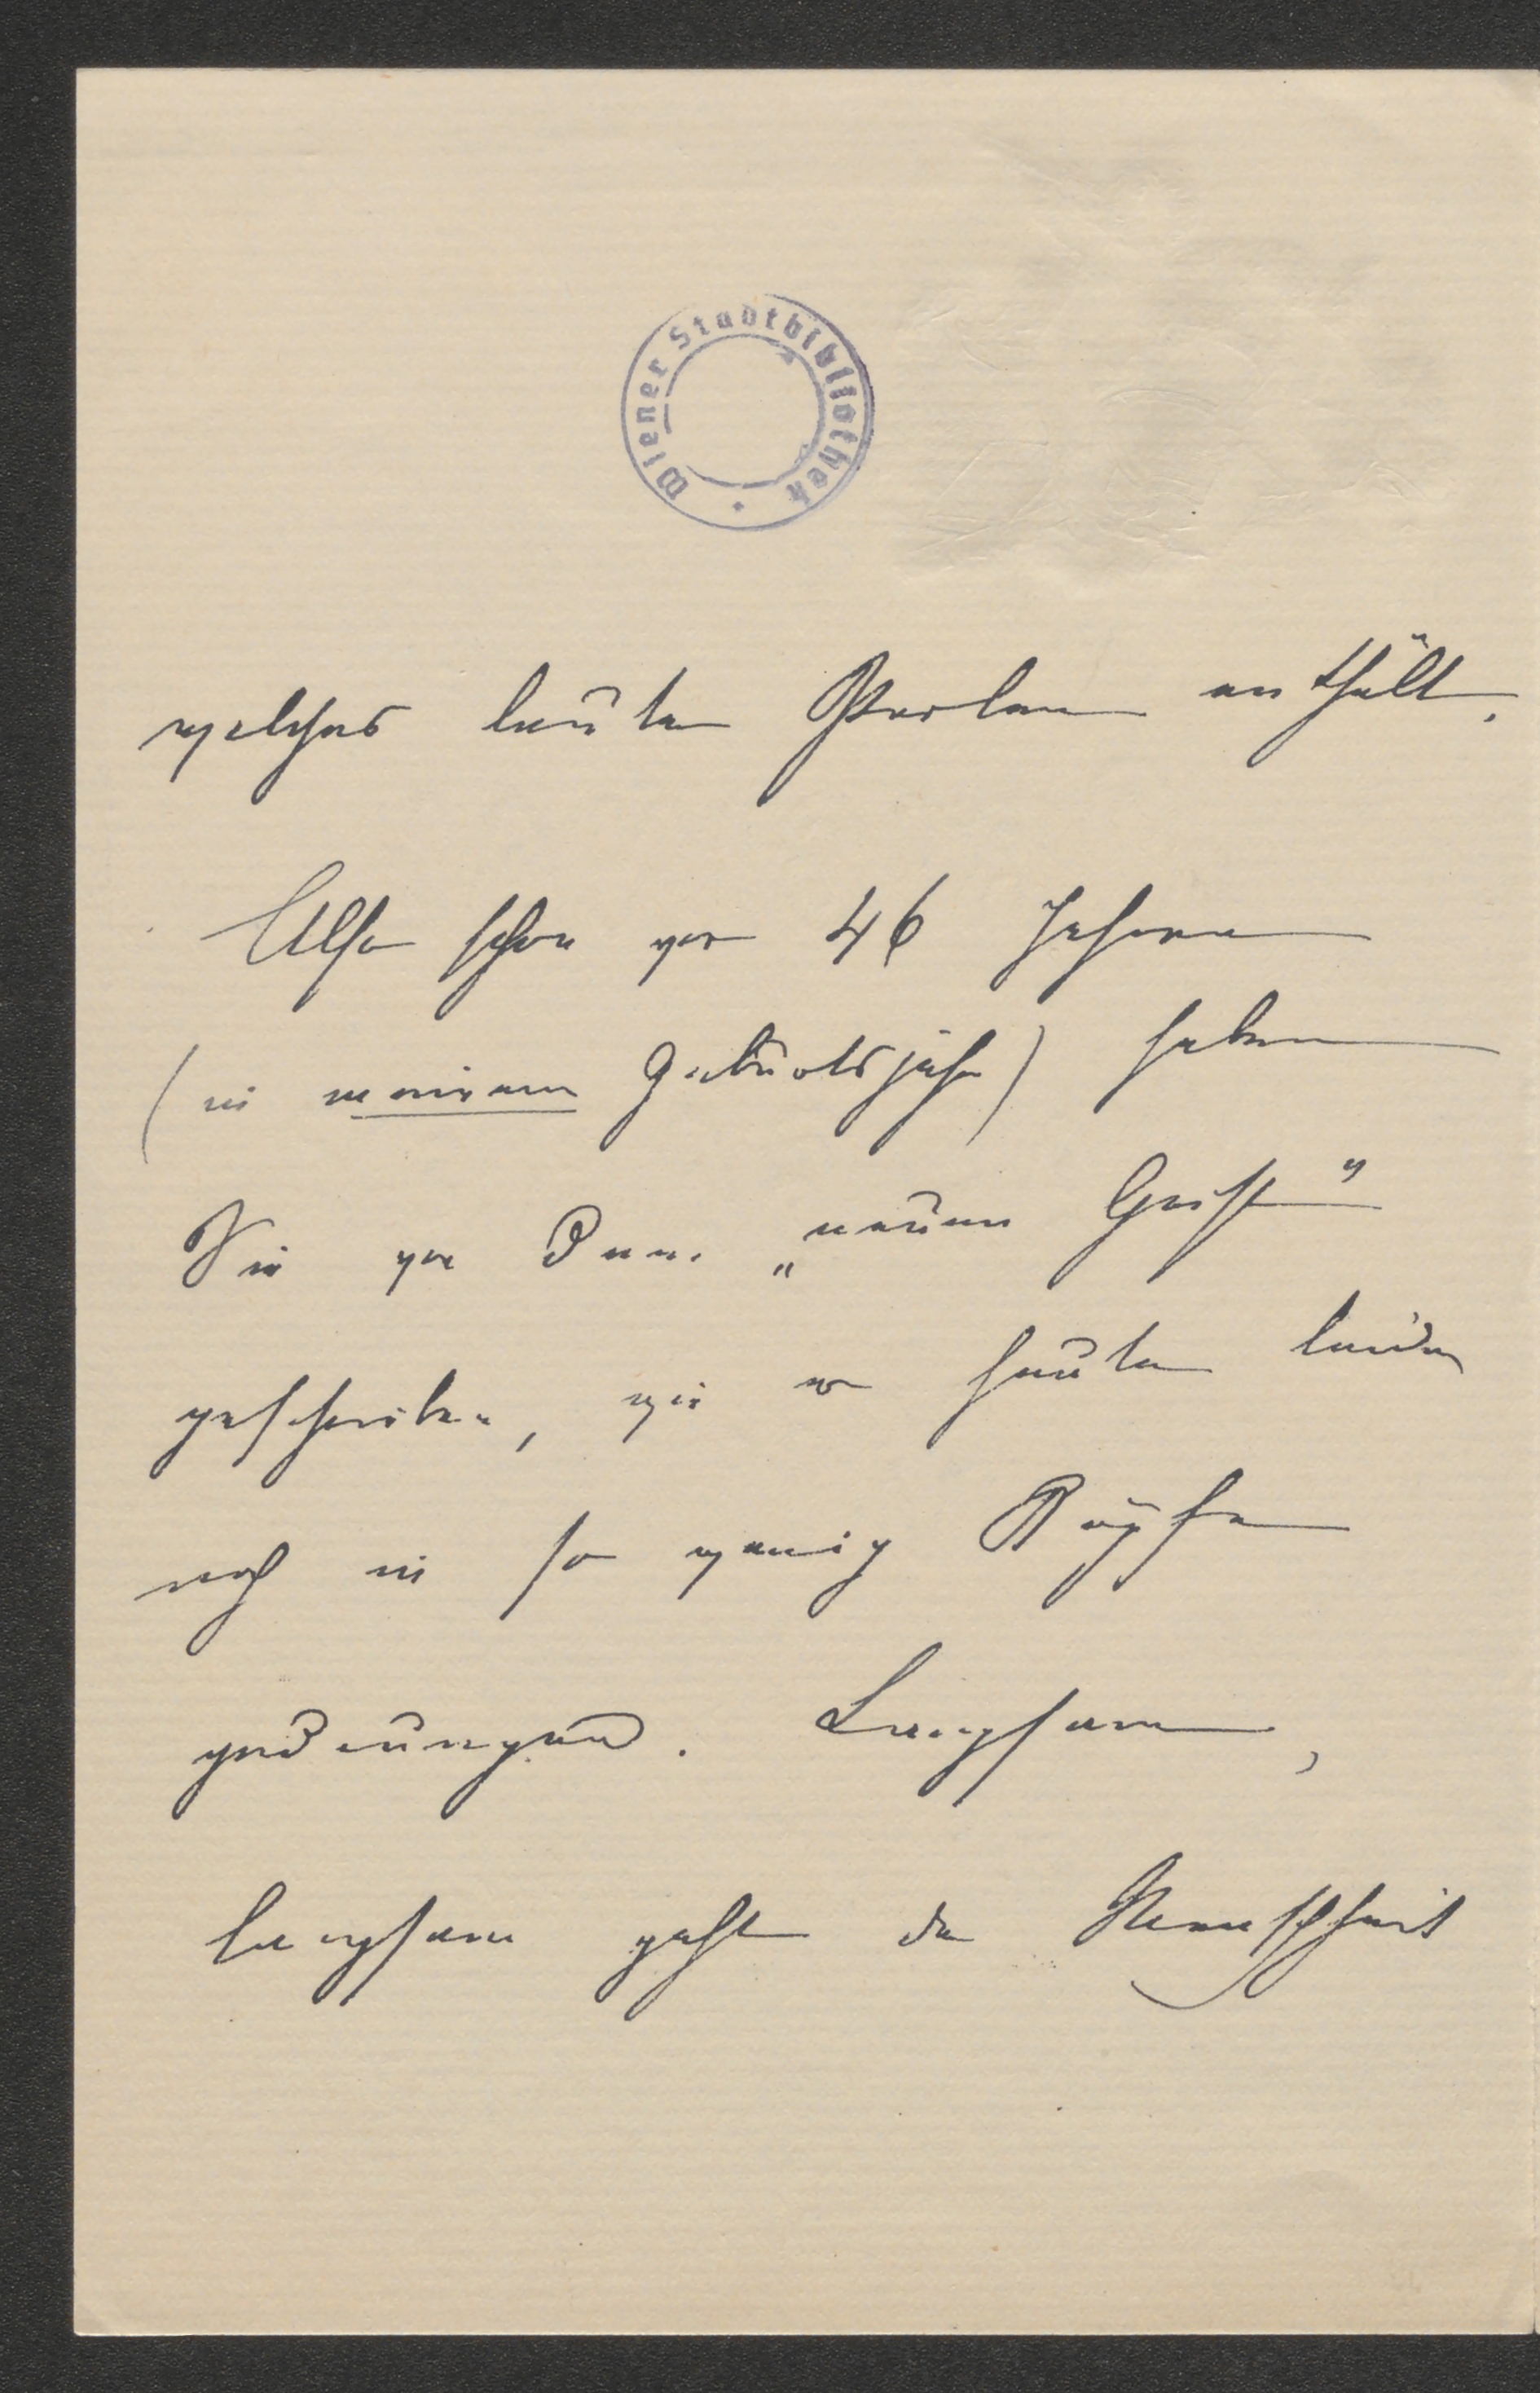 Wiener Stadtbibliothek
welches lauter Perlen enthält.
Also schon vor 46 Jahren
(in meinem Geburtsjahr) haben
Sie von dem „neuen Geist"
geschrieben, wie er heute leider
noch in so wenig Köpfen
gedrungen. Langsam,
langsam geht die Menschheit